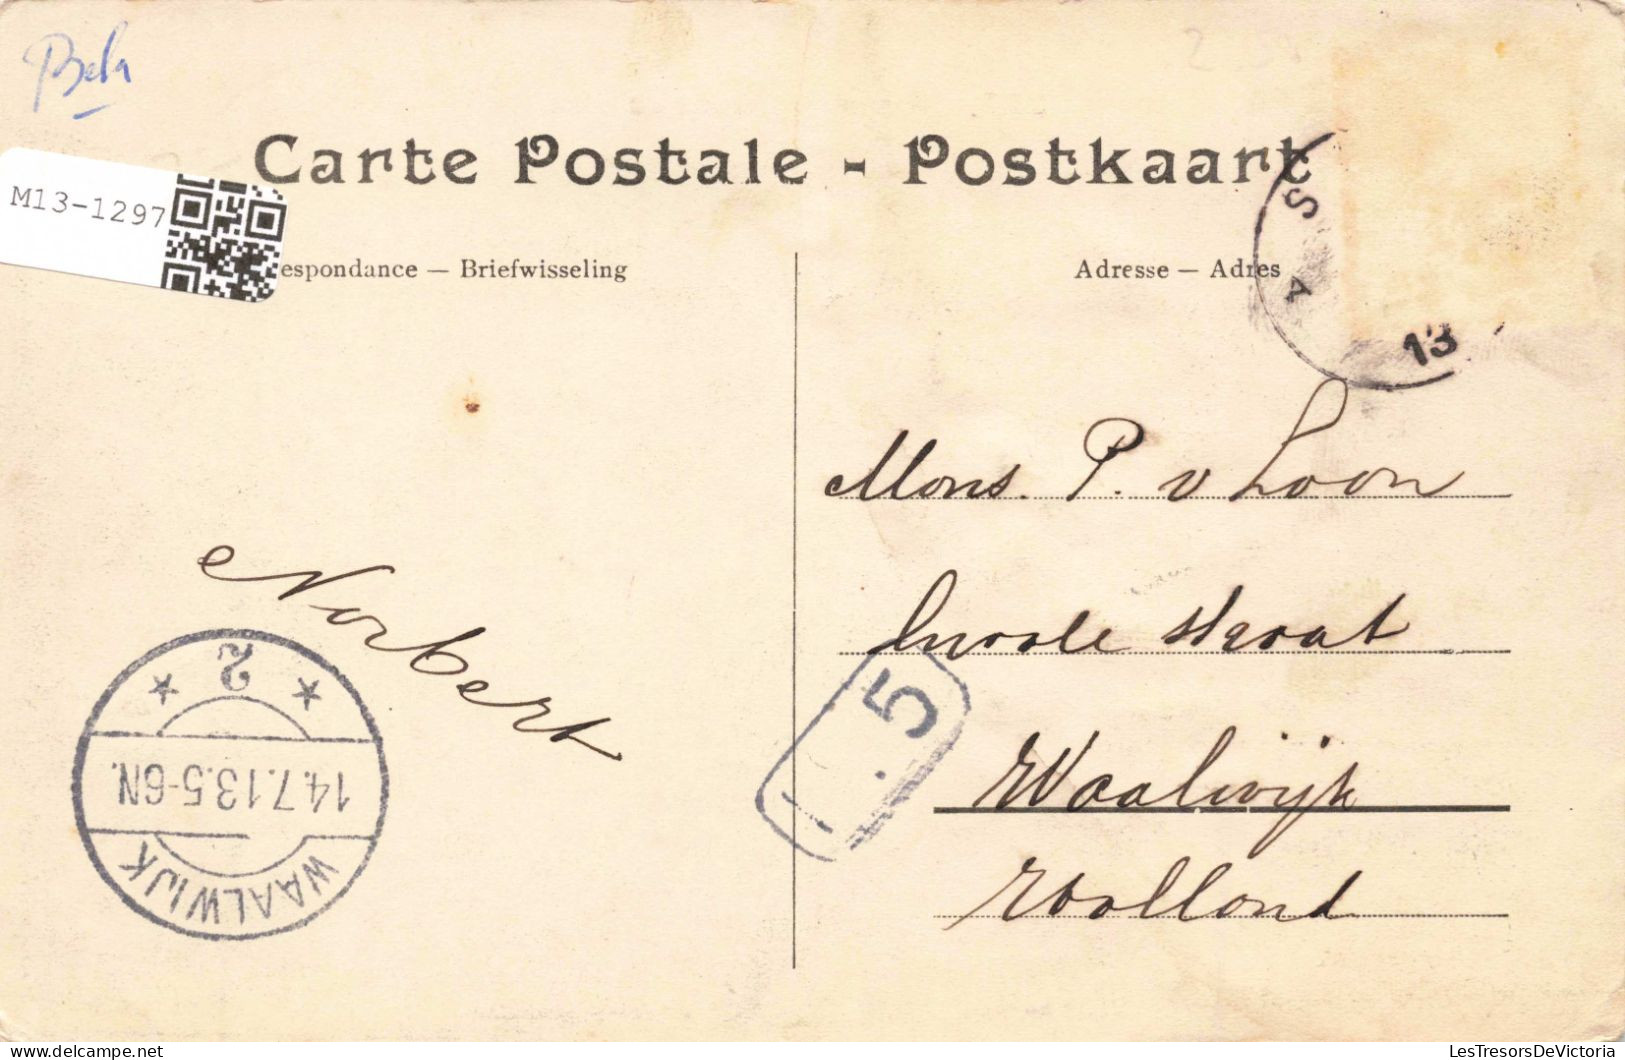 Bela
Carte Postale - Postkaart
M13-1297
espondance — Briefwisseling
Adresse — Adres
S A
13
Mons. P. v Loon
straat
Waalwijk
Holland
Norbert
5
2
14.7.13.5-6N.
WAALWIJK
delcampe.net
LesTresorsDeVictoria